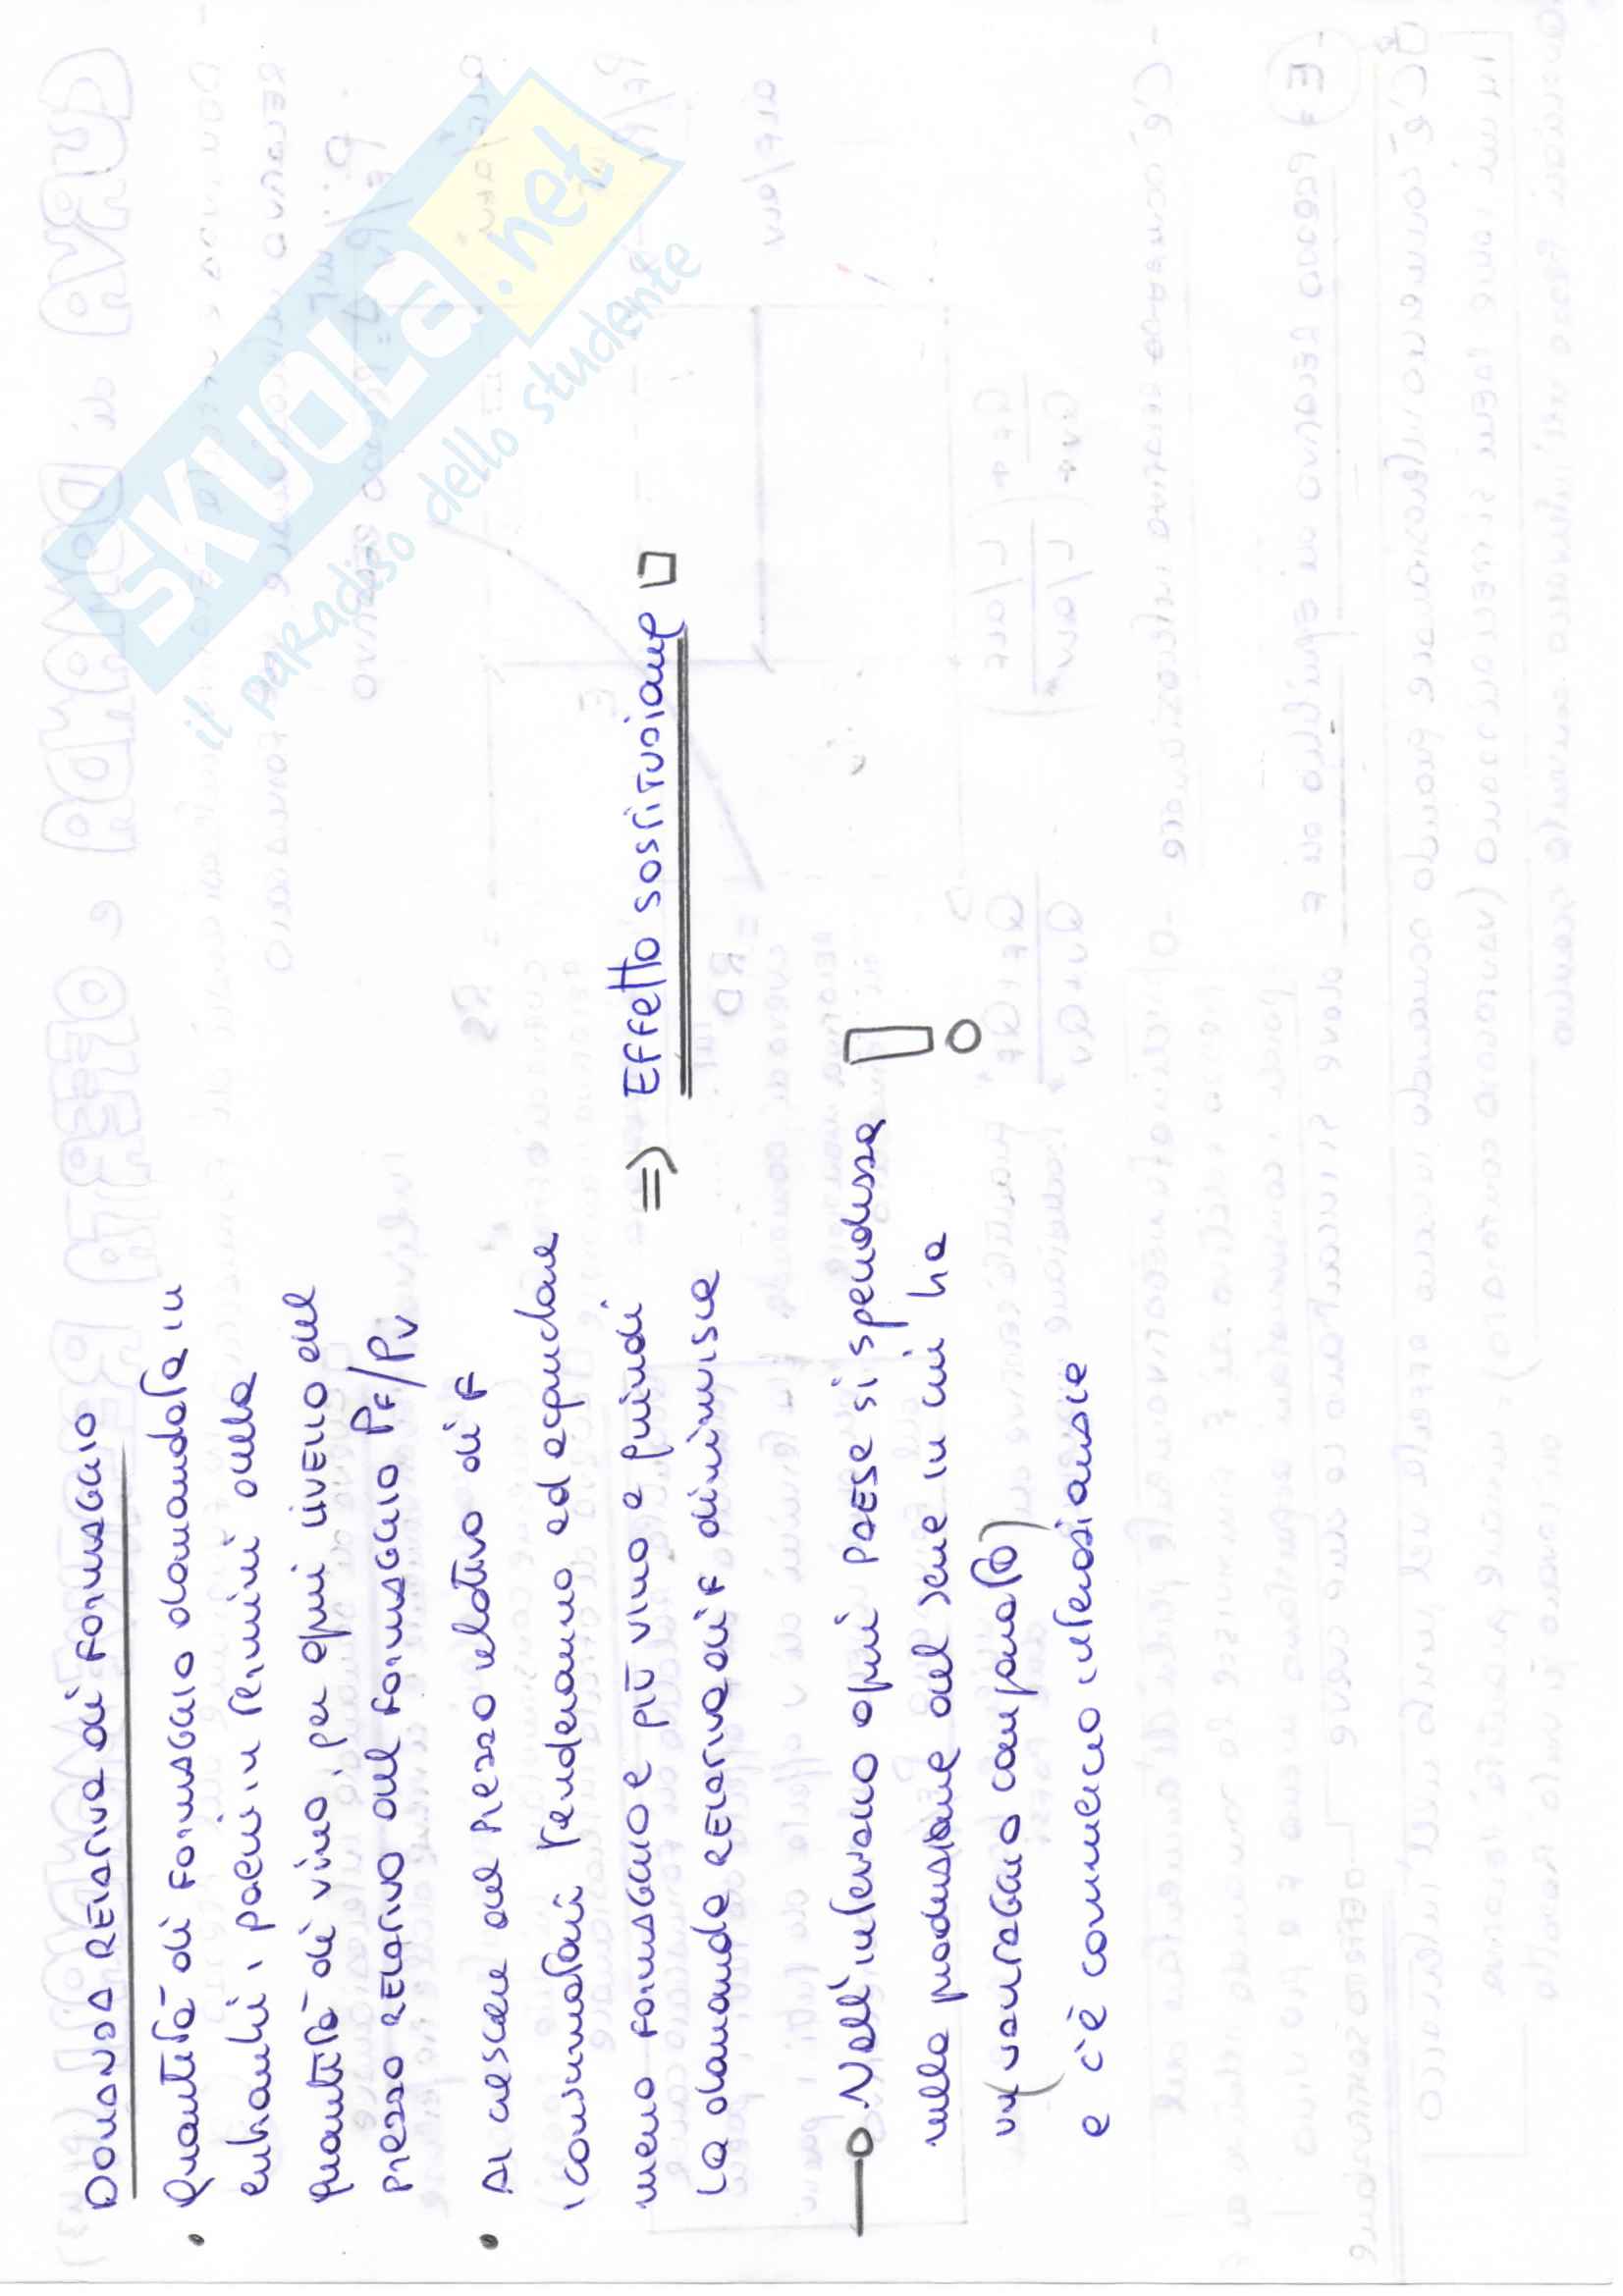 DOMANDA RELATIVA di FORMAGGIO
• Quantità di FORMAGGIO domandata in
entrambi i paesi in termini della
quantità di vino, per ogni LIVELLO del
prezzo RELATIVO del FORMAGGIO PF/PV
• Al crescere del prezzo relativo di F
i consumatori tenderanno ad acquistare
meno FORMAGGIO e più vino e quindi => EFFETTO SOSTITUZIONE
La domanda RELATIVA di F diminuisce
Nell'intervallo ogni PAESE si specializza !
nella produzione del bene in cui ha
un (VANTAGGIO comparato)
e c'è commercio internazionale
SKUOLA.net
il paradiso dello studente